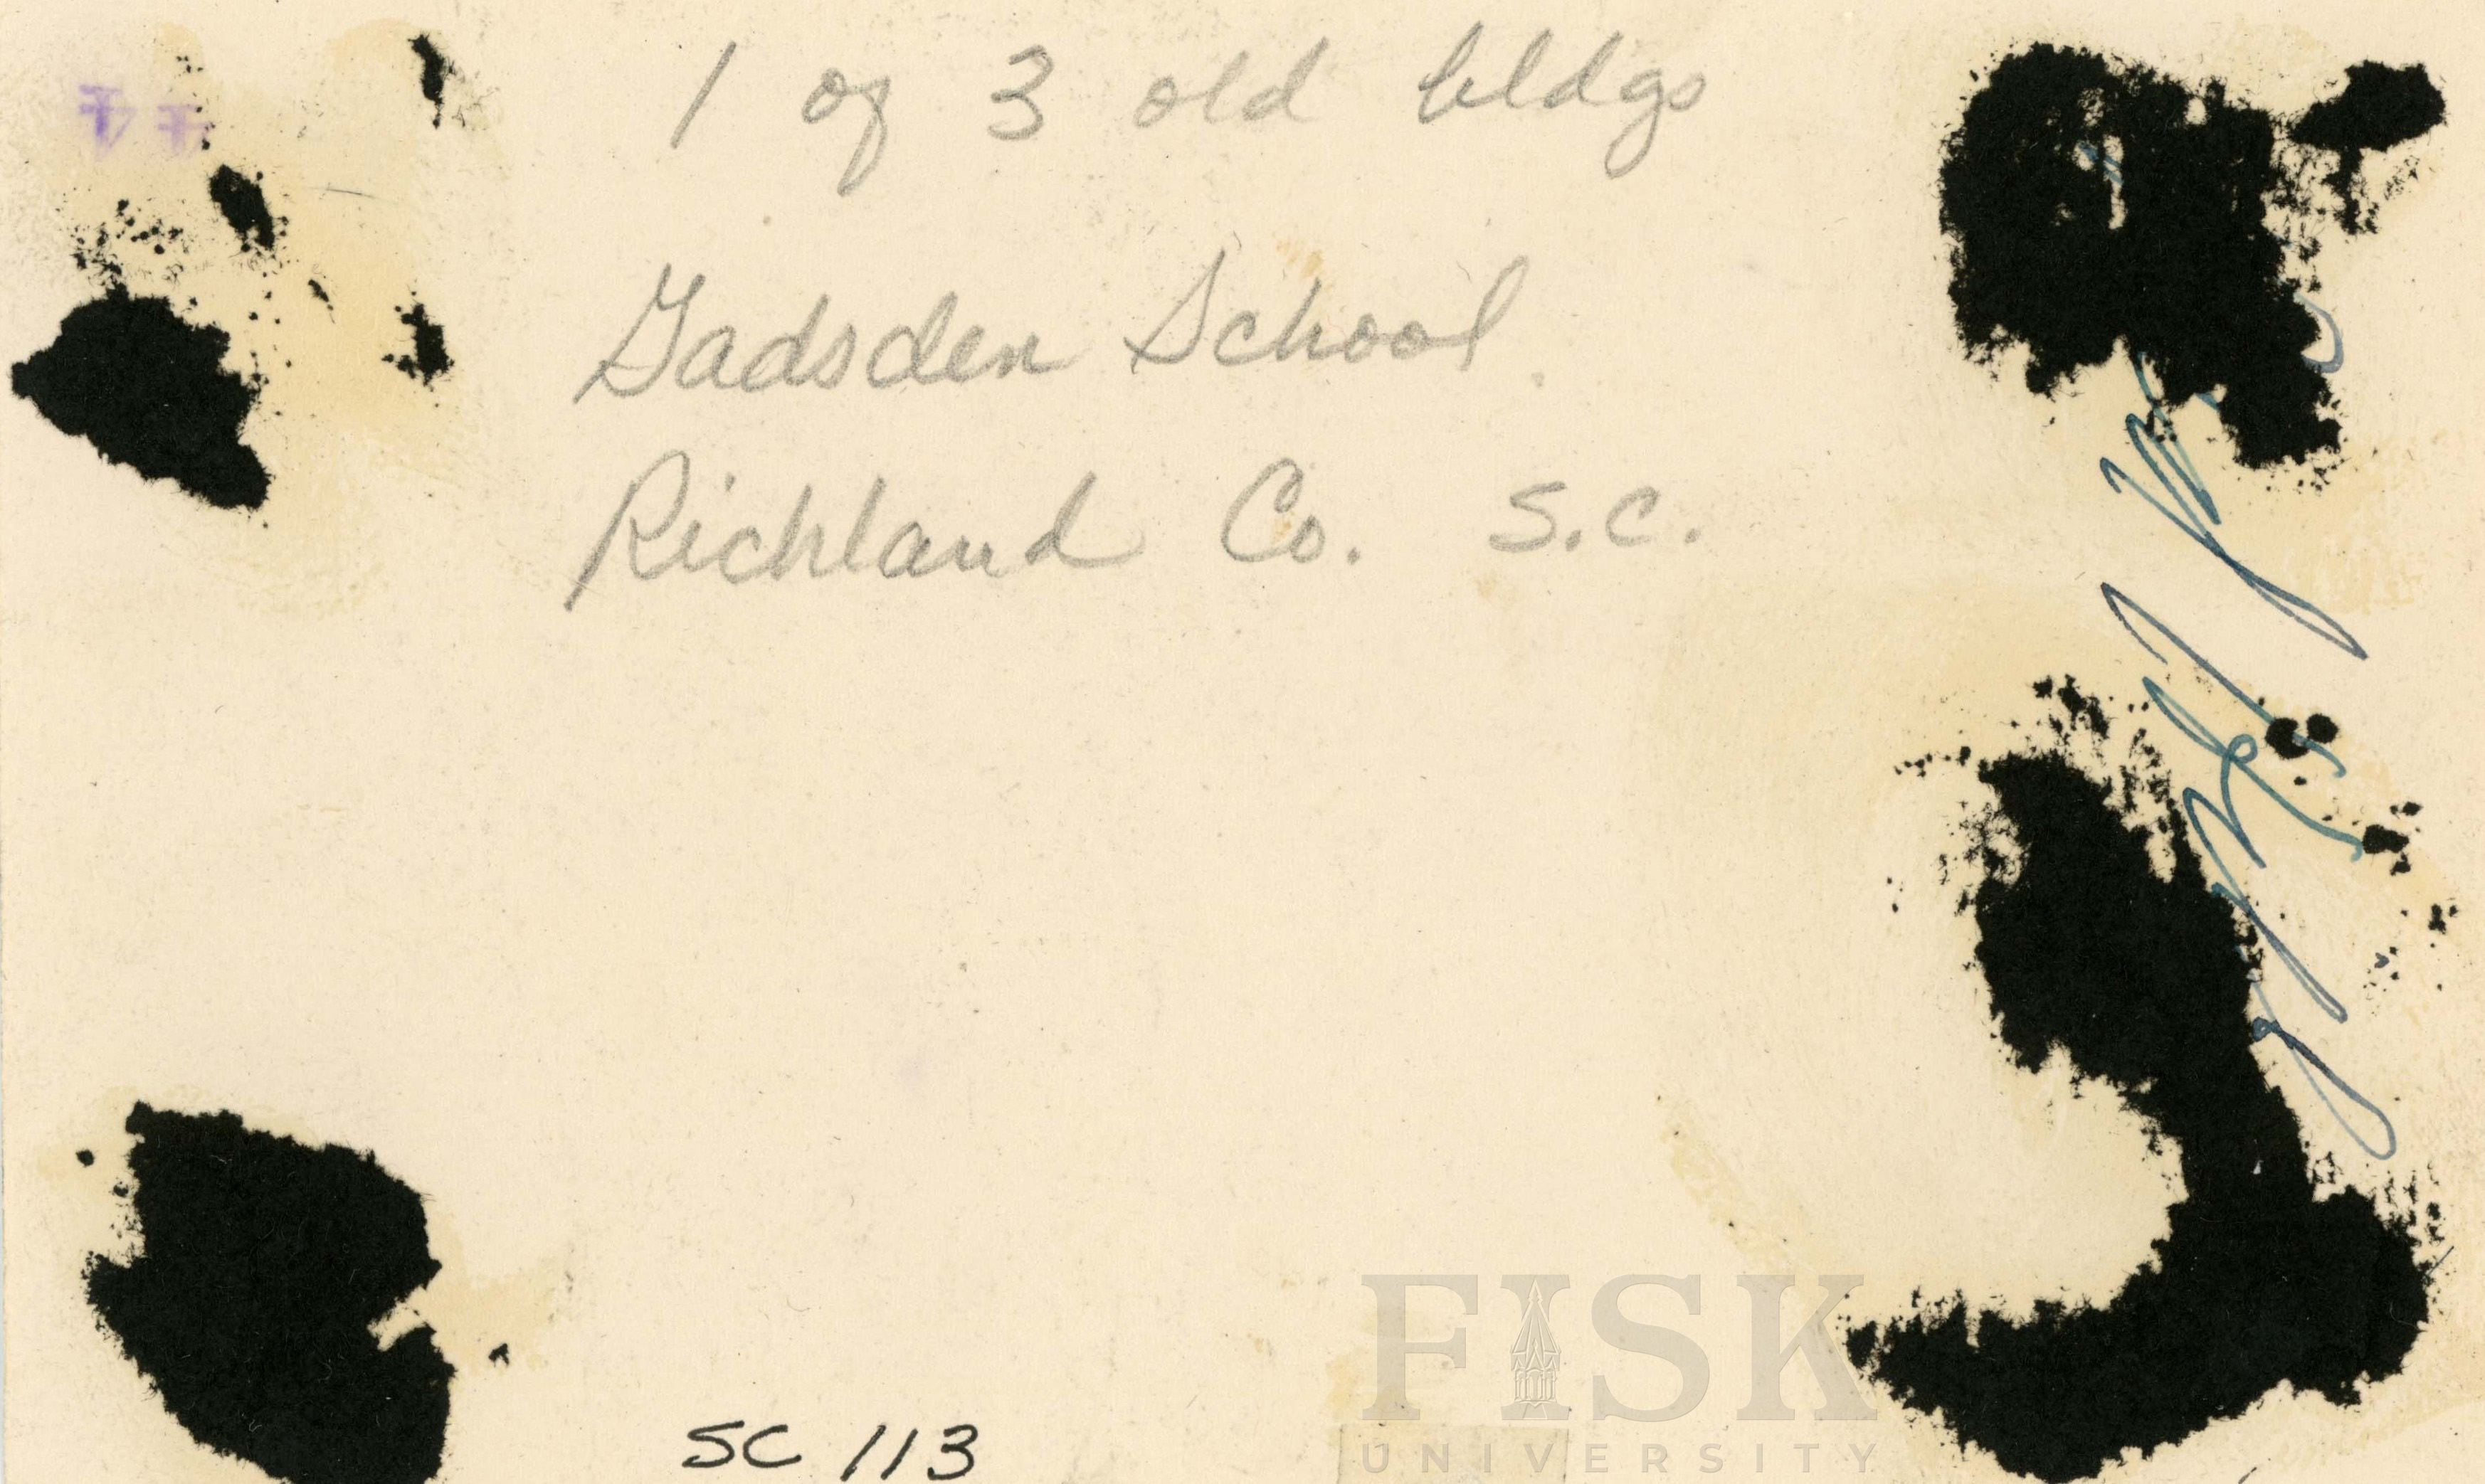 1 of 3 old bldgs
Gadsden School.
Richland Co. S.C.
SC 113
FISK
UNIVERSITY